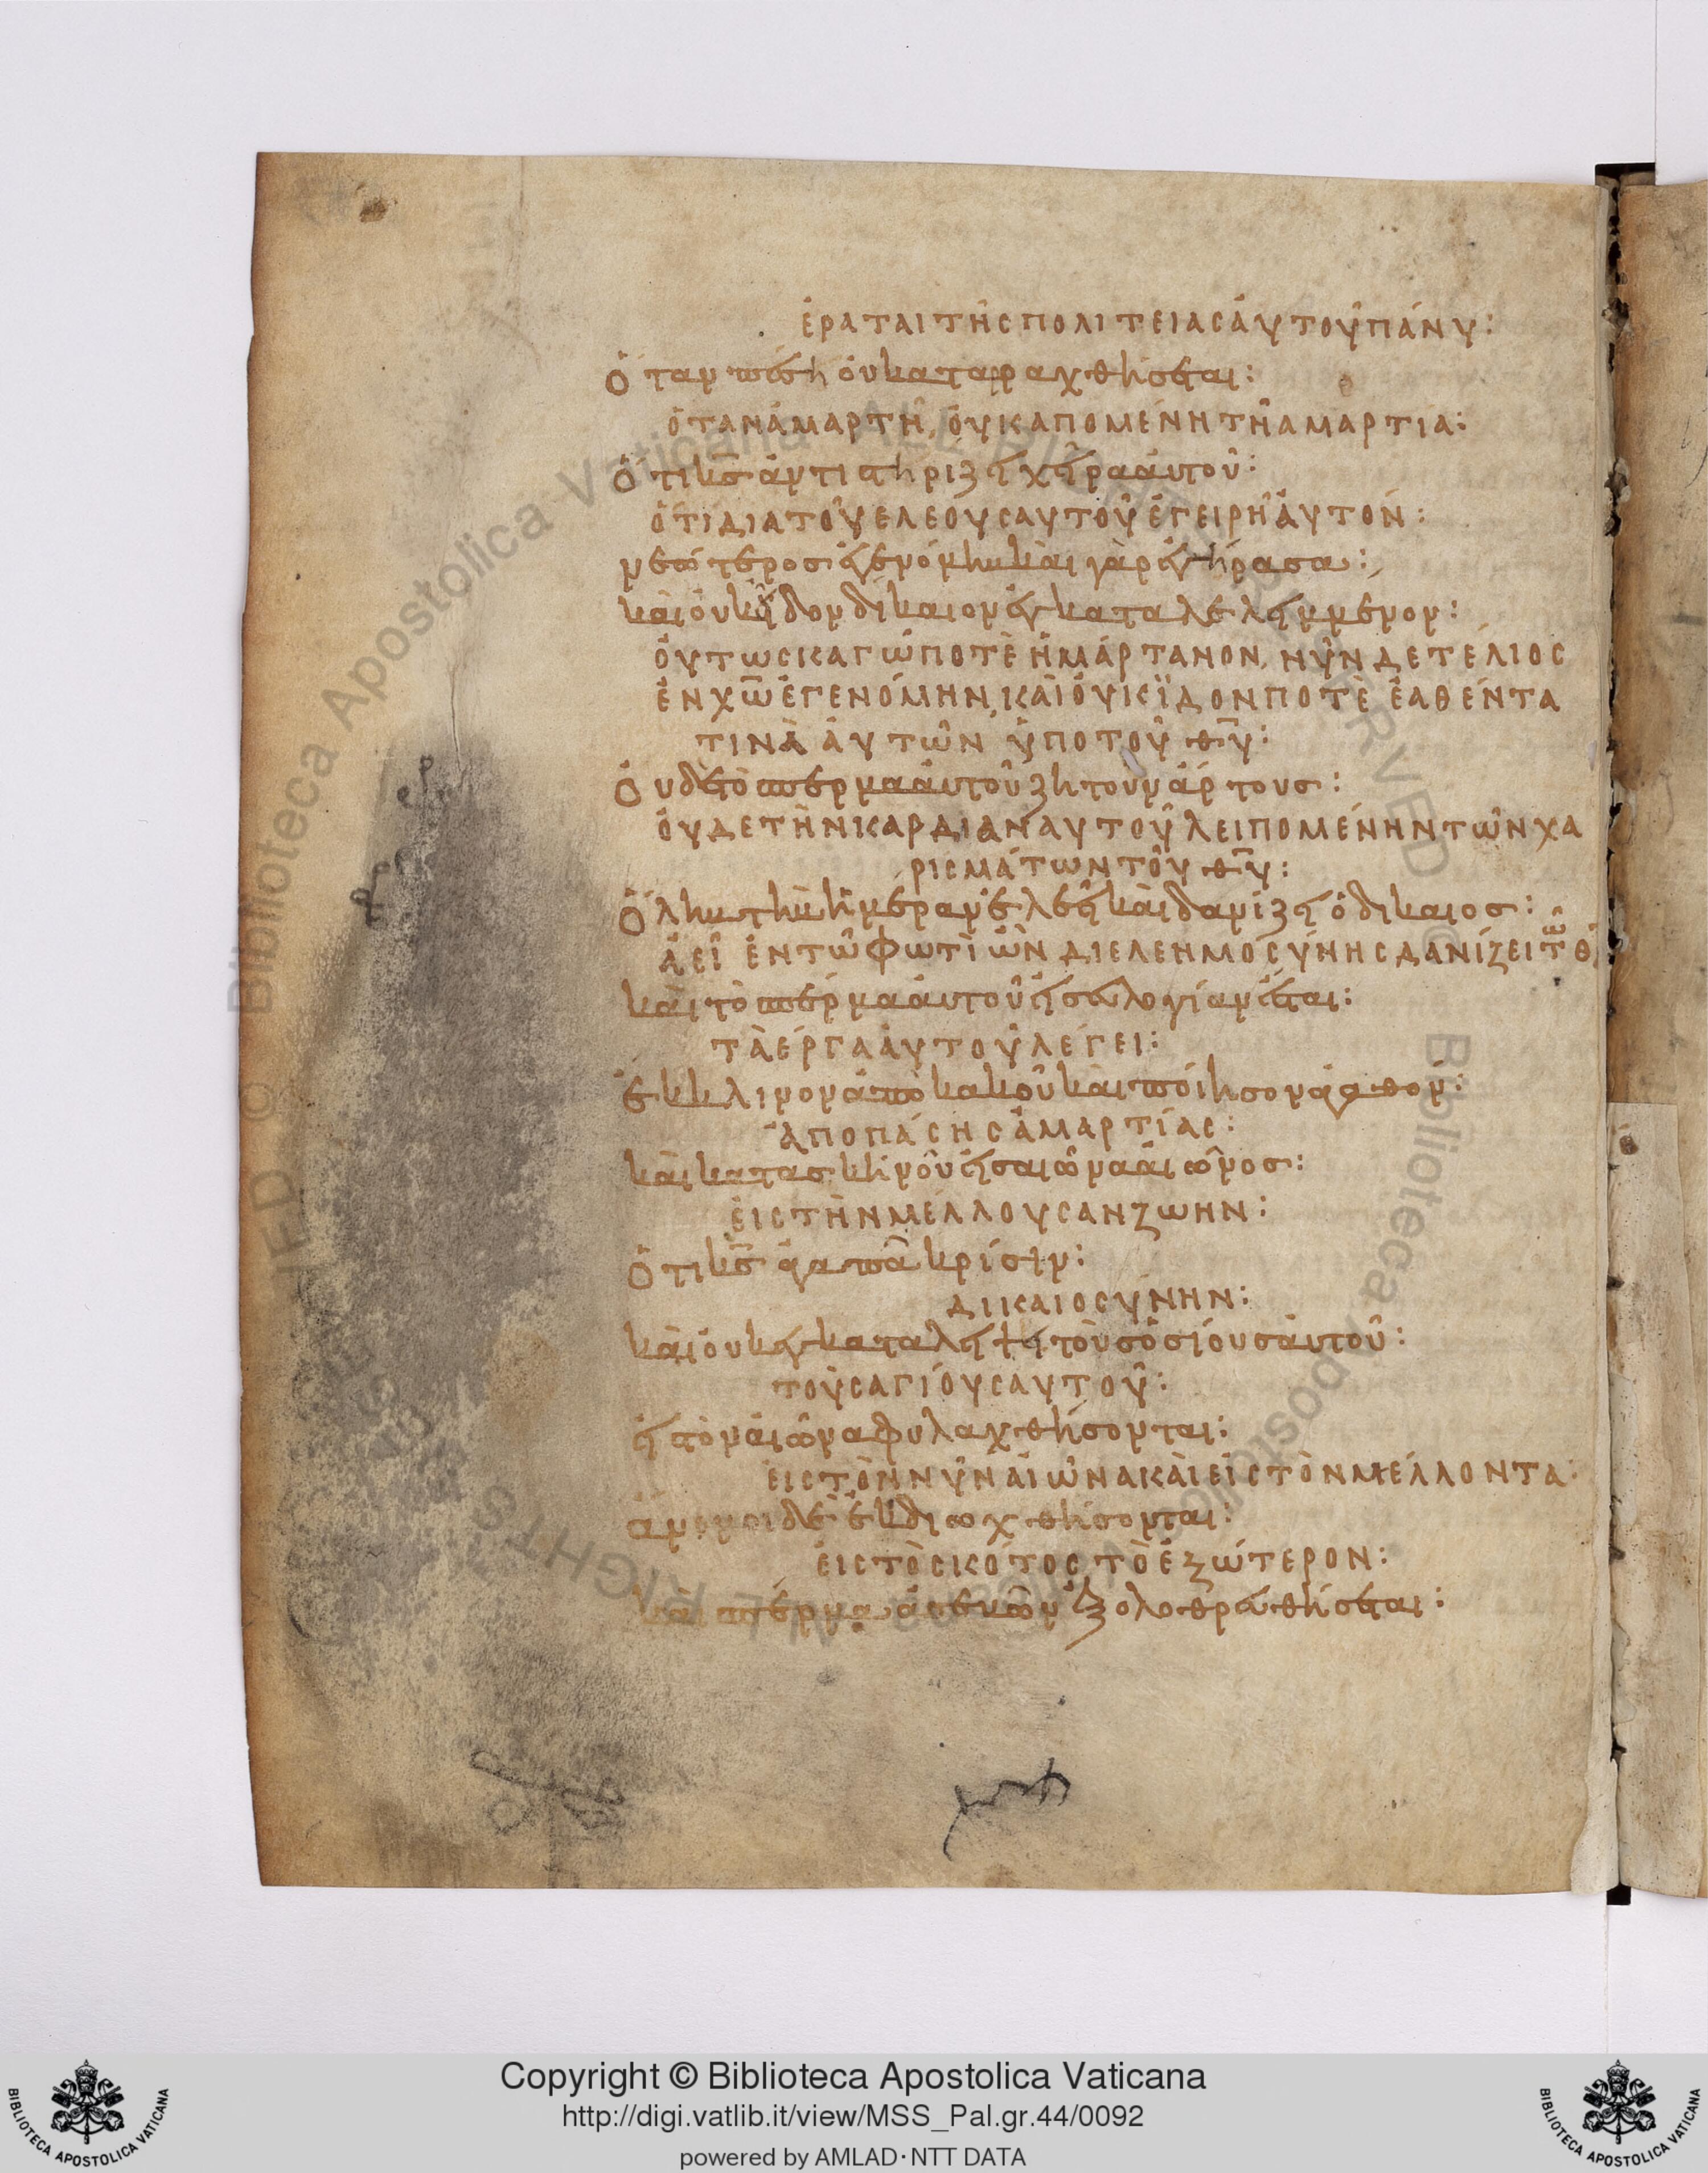 ἐραται τῆς πολιτείας ἀυτοῦ πάνυ:
Ὅταν πέση ὀυ καταραχθήσεται:
ὅταν ἁμαρτῆ, ὀυκ απομένη τῆ αμαρτία:
Ὅτι κ̅ς̅ ἀντιστηρίζει χεῖρα ἀυτοῦ:
ὅτι δια τοῦ ελέους αυτοῦ ἐγείρη ἀυτόν:
νεώτερος ἐγενόμην και γὰρ ἐγήρασα:
και ὀυκ εἶδον δίκαιον ἐγκαταλελειμμένον:
ὅυτως καγώ ποτὲ ἡμάρτανον, νῦν δε τέλιος
ἐν χ̅ω̅ ἐγενόμην, και ὀυκ ἴδον ποτὲ ἐαθέντα
τινὰ ἀυτῶν ὑπο τοῦ θ̅υ̅:
Ὀυδὲ τὸ σπέρμα ἀυτοῦ ζητοῦν ἄρτους:
ὀυδε τὴν καρδίαν αυτοῦ λειπομένην τῶν χα
ρισμάτων τοῦ θ̅υ̅:
Ὅλην τὴν ἡμέραν ἐλεεῖ και δανίζει ὁ δίκαιος:
ἀεὶ ἐν τῶ φωτὶ ὢν δι ελεημοσύνης δανίζει τῶ θ̅
και τὸ σπέρμα ἀυτοῦ εἰς ευλογίαν ἔσται:
τὰ έργα ἀυτοῦ λέγει:
ἔκκλινον ἀπὸ κακοῦ και ποίησον ἀγαθόν:
ἀπο πάσης ἁμαρτίας:
και κατασκήνου εἰς αιῶνα ἀιῶνος:
ἐις τὴν μέλλουσαν ζωην:
Ὅτι κ̅ς̅ ἀγαπᾶ κρίσιν:
δικαιοσύνην:
και ὀυκ ἐγκαταλείψει τοὺς ὁσίους ἀυτοῦ:
τοὺς αγίους αυτοῦ:
εἰς τὸν ἀιῶνα φυλαχθήσονται:
ἐις τὸν νῦν ἀιῶνα και εἰς τὸν μέλλοντα:
ἄνομοι δὲ ἐκδιωχθήσονται:
ἐις τὸ σκότος τὸ ἐξώτερον:
και σπέρμα ἀσεβῶν ἐξολοθρευθήσεται:
Copyright © Biblioteca Apostolica Vaticana
http://digi.vatlib.it/view/MSS_Pal.gr.44/0092
powered by AMLAD·NTT DATA
BIBLIOTECA APOSTOLICA VATICANA
BIBLIOTECA APOSTOLICA VATICANA